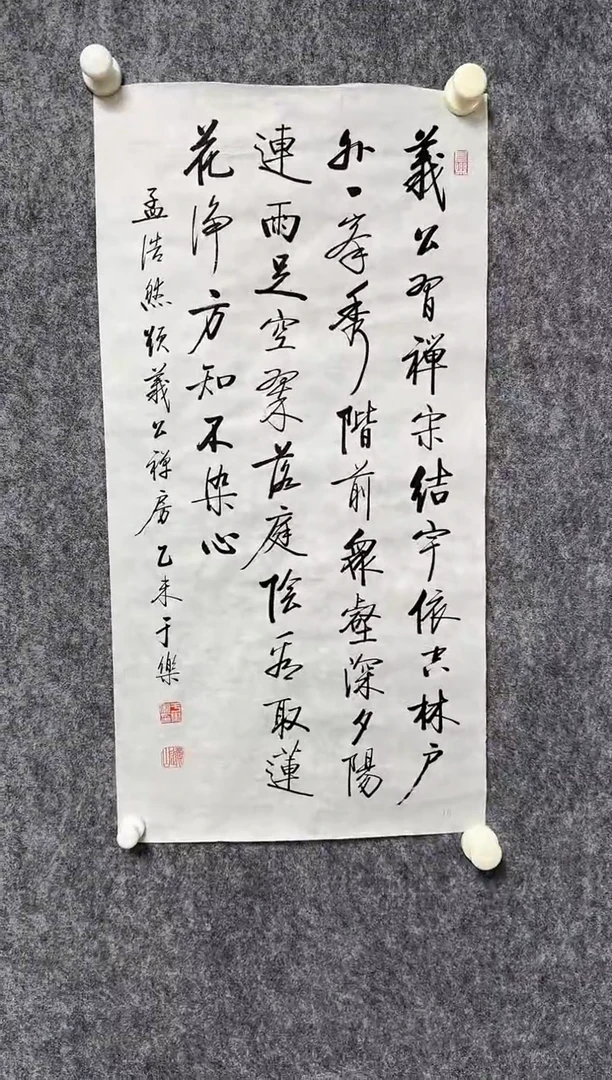 義公習禪宋結宇依古林户
外一峯秀階前衆壑深夕陽
連雨足空翠落庭陰看取蓮
花净方知不染心
孟浩然題義公禪房乙未于樂